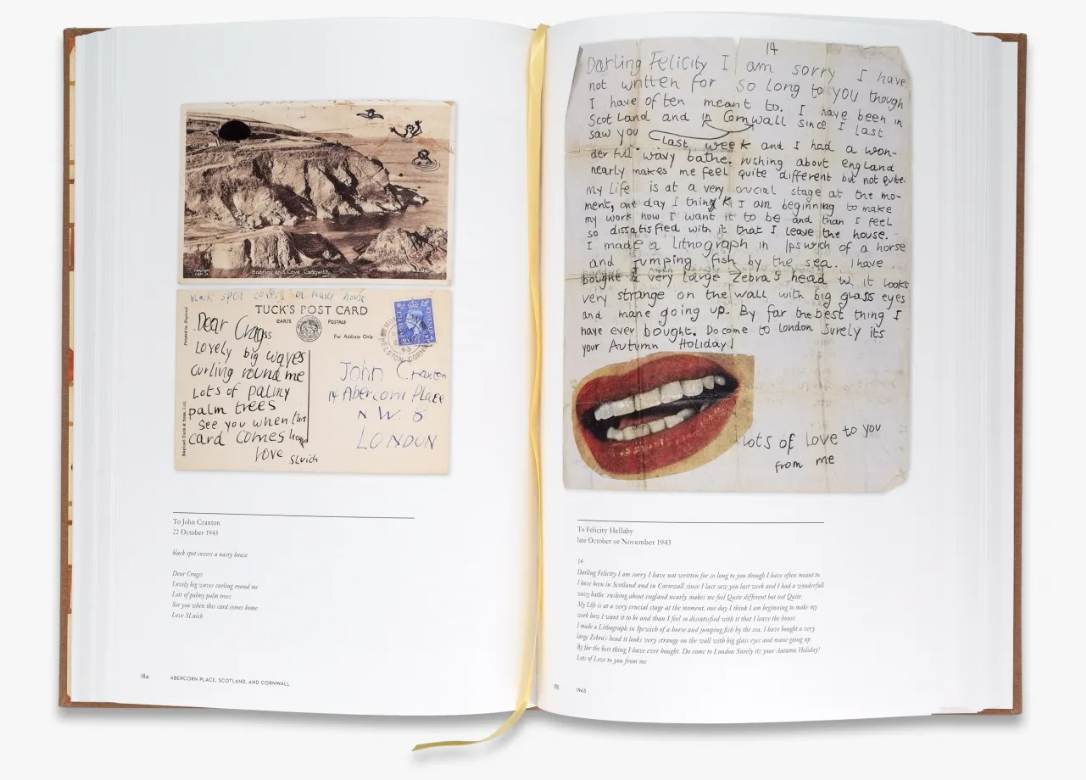 Cadgwith
black spot covers a nasty house
TUCK'S POST CARD
CARTE POSTALE
For Address Only
Dear Craggs
Lovely big waves
curling round me
Lots of palmy
palm trees
See you when this
card comes home
Love Sluich
John Craxton
14 Abercorn Place
N W 8
LONDON
To John Craxton
22 October 1943
black spot covers a nasty house
Dear Craggs
Lovely big waves curling round me
Lots of palmy palm trees
See you when this card comes home
Love SLuich
184
ABERCORN PLACE, SCOTLAND, AND CORNWALL
14
Darling Felicity I am sorry I have
not written for so long to you though
I have often meant to. I have been in
Scotland and in Cornwall since I last
saw you last week and I had a won-
derfull wavy bathe. rushing about england
nearly makes me feel quite different but not quite.
My Life is at a very crucial stage at the mo-
ment, one day I think I am beginning to make
my work how I want it to be and than I feel
so dissatisfied with it that I leave the house.
I made a Lithograph in Ipswich of a horse
and jumping fish by the sea. I have
bought a very large Zebra's head it looks
very strange on the wall with big glass eyes
and mane going up. By far the best thing I
have ever bought. Do come to London Surely its
your Autumn Holiday!
Lots of Love to you
from me
To Felicity Hellaby
late October or November 1943
14
Darling Felicity I am sorry I have not written for so long to you though I have often meant to
I have been in Scotland and in Cornwall since I last saw you last week and I had a wonderfull
wavy bathe. rushing about england nearly makes me feel Quite different but not Quite.
My Life is at a very crucial stage at the moment, one day I think I am beginning to make my
work how I want it to be and than I feel so dissatisfied with it that I leave the house.
I made a Lithograph in Ipswich of a horse and jumping fish by the sea. I have bought a very
large Zebra's head it looks very strange on the wall with big glass eyes and mane going up.
By far the best thing I have ever bought. Do come to London Surely its your Autumn Holiday!
Lots of Love to you from me
1943